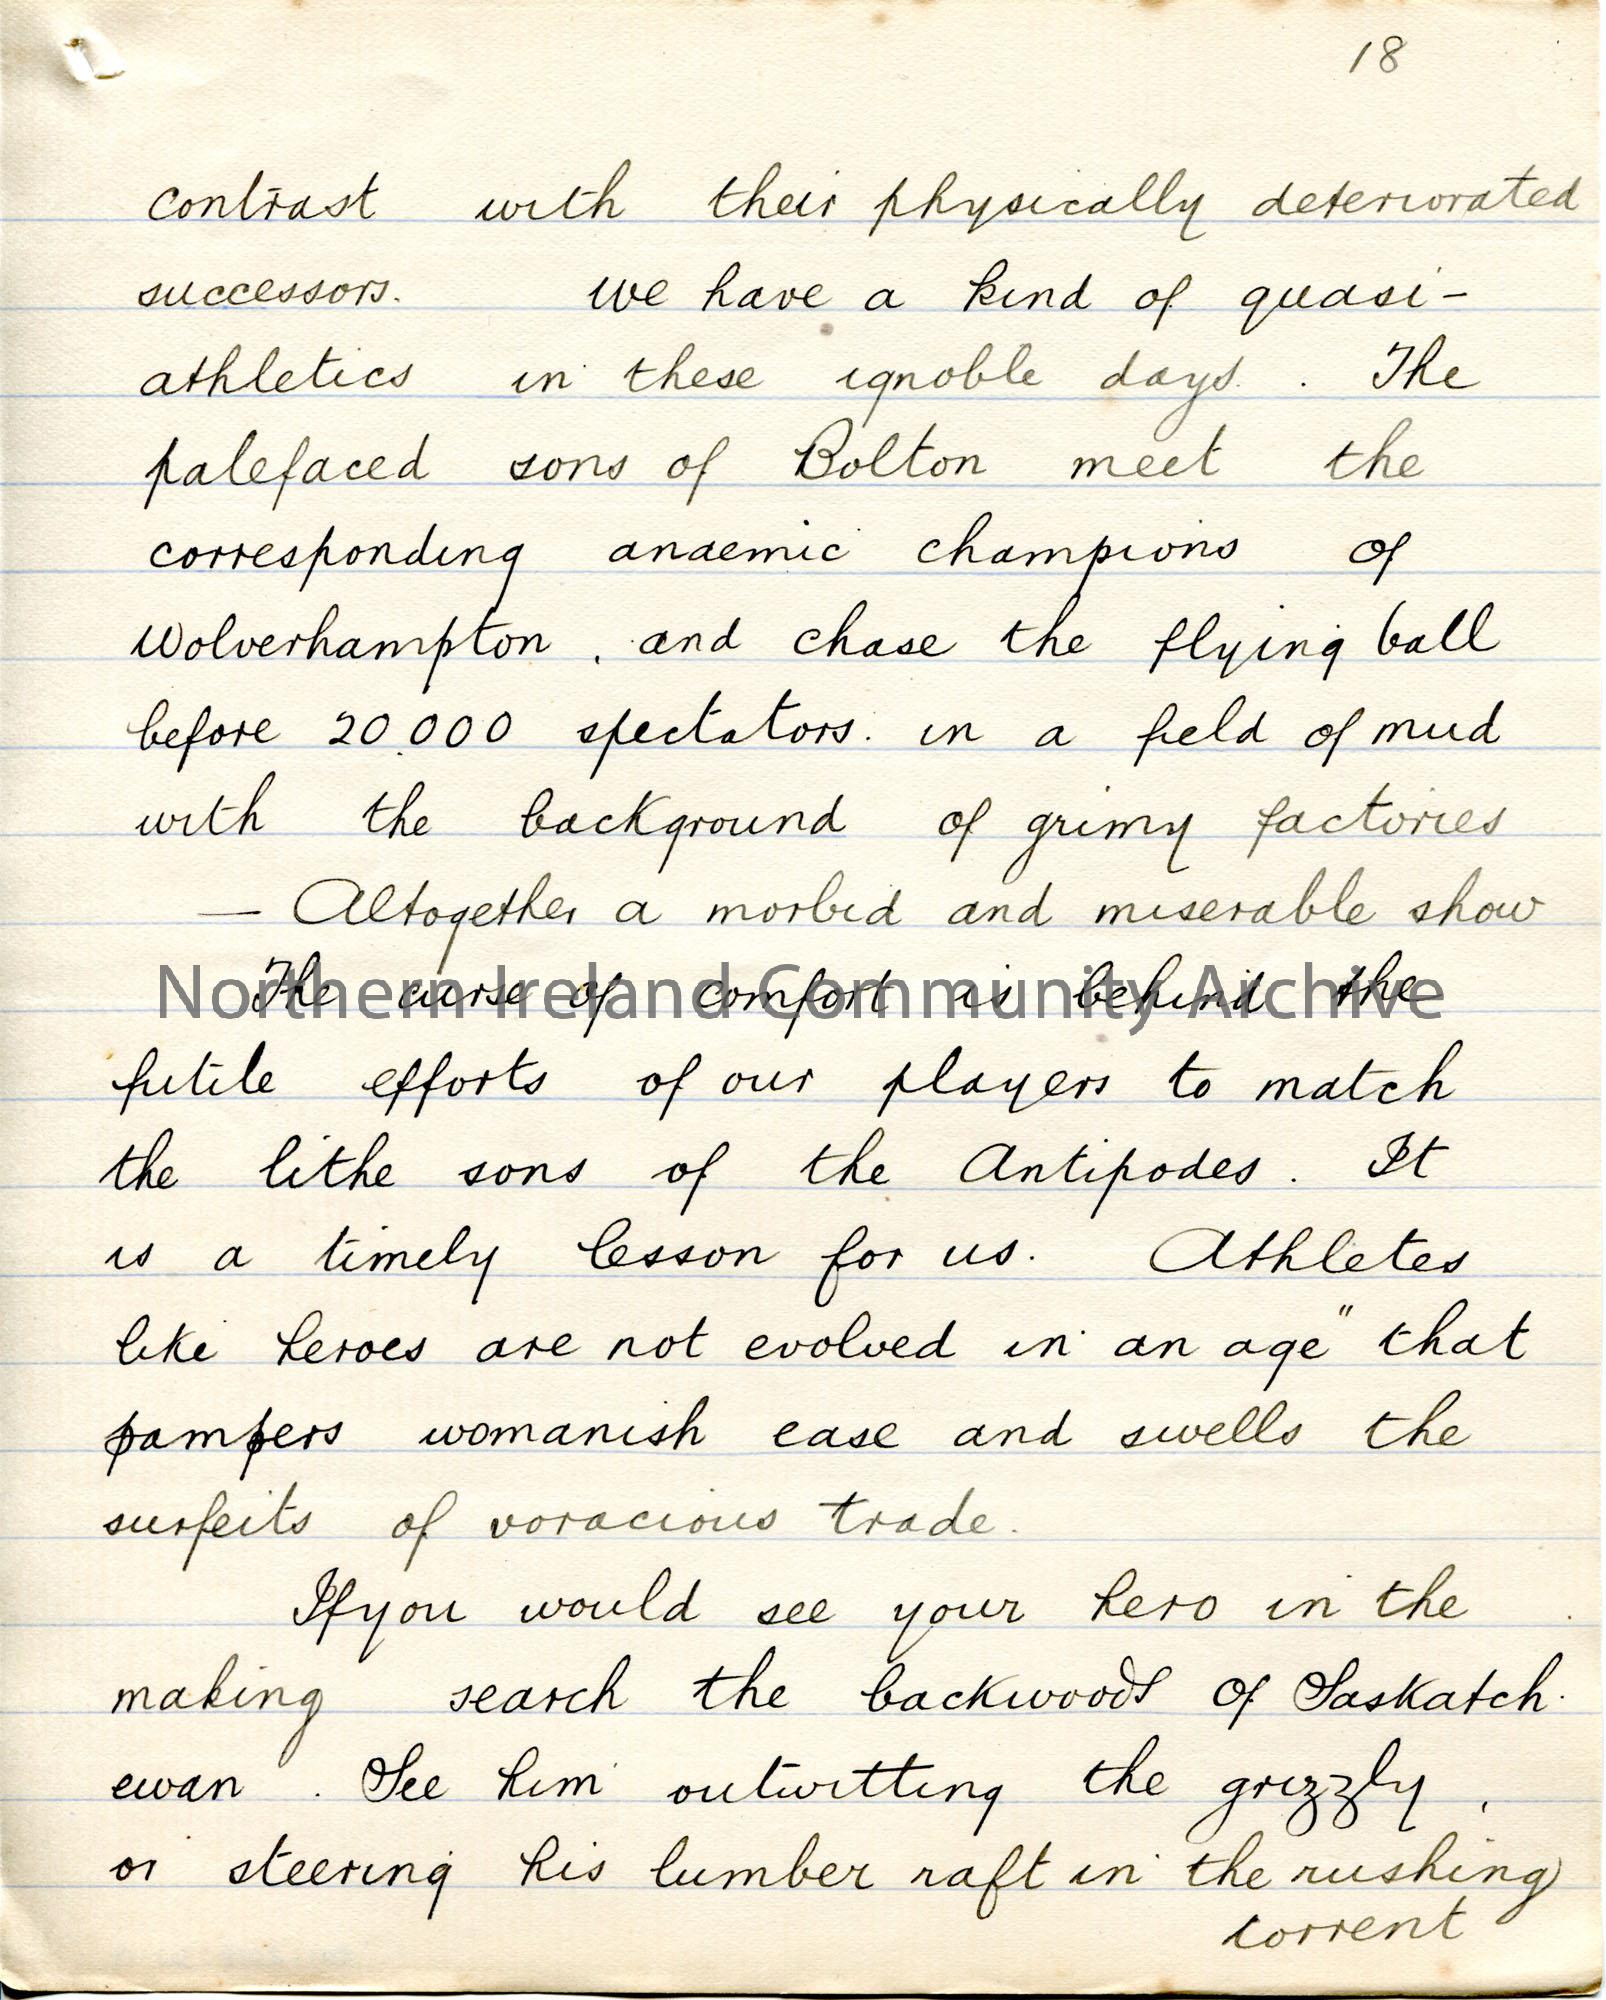 18
contrast with their physically deteriorated
successors. We have a kind of quasi-
athletics in these ignoble days. The
palefaced sons of Bolton meet the
corresponding anaemic champions of
Wolverhampton, and chase the flying ball
before 20.000 spectators. in a field of mud
with the background of grimy factories
— Altogether a morbid and miserable show
The curse of comfort is behind the
Northern Ireland Community Archive
futile efforts of our players to match
the lithe sons of the Antipodes. It
is a timely lesson for us. Athletes
like heroes are not evolved in an age" that
pampers womanish ease and swells the
surfeits of voracious trade.
If you would see your hero in the
making search the backwoods of Saskatch-
ewan. See him outwitting the grizzly,
or steering his lumber raft in the rushing
torrent